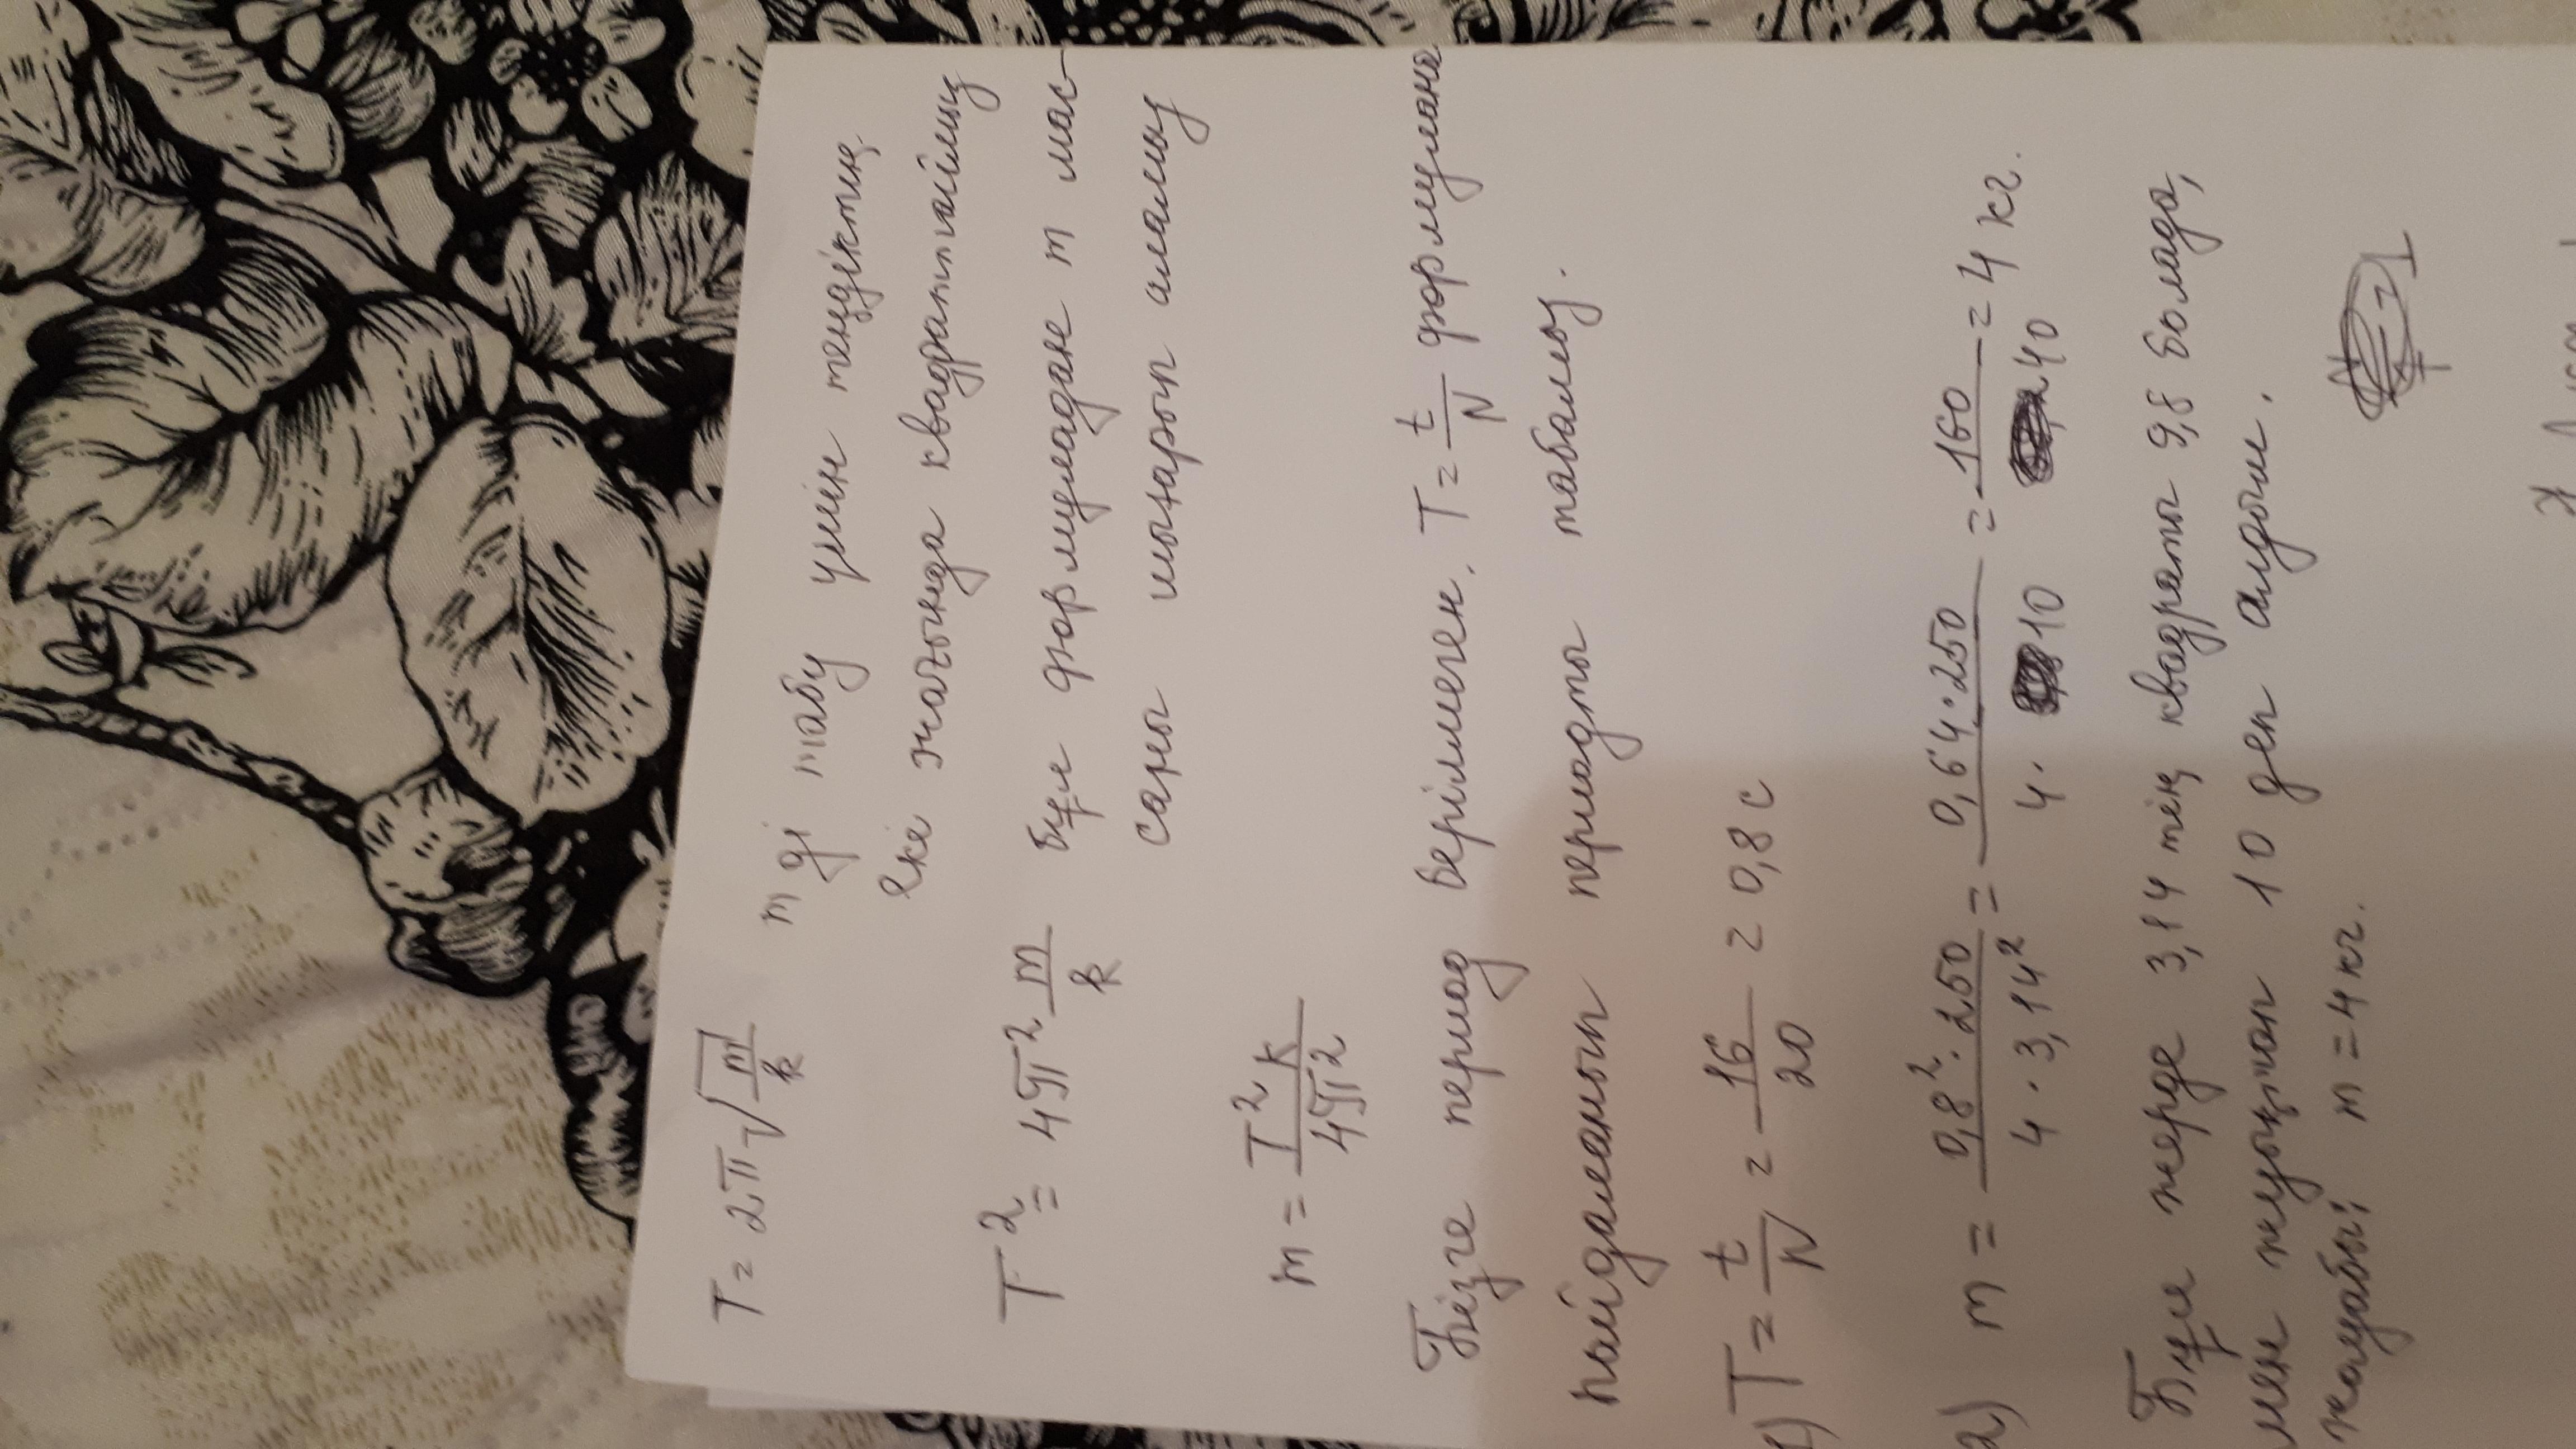 T = 2π√m/k m ді табу үшін теңдіктің
екі жағында квадраттаймыз
T² = 4π² m/k Бұл формуладан m мас-
саны шығарып аламыз
m = T²k/4π²
Бізге период берілмеген. T = t/N формуланы
пайдаланып периодты табамыз.
1) T = t/N = 16/20 = 0,8 с
2) m = 0,8²·250/4·3,14² = 0,64·250/4·10 = 160/40 = 4 кг.
Бұл жерде 3,14 тің квадраты 9,8 болады,
мен жуықтап 10 деп алдым.
жауабы: m = 4 кг.